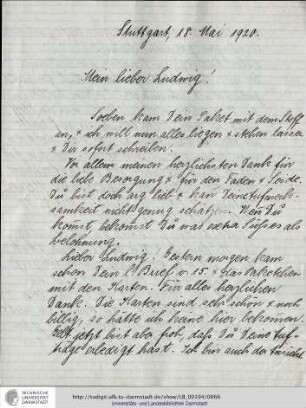 Stuttgart, 18. Mai 1920.
Mein lieber Ludwig!
Soeben kam Dein Paket mit dem Stoff
an, & ich will nun alles liegen & stehen lassen
& Dir sofort schreiben.
Vor allem meinen herzlichsten Dank für
die liebe Besorgung & für den Faden & Seide.
Du bist doch arg lieb & kann Deine Aufmerk-
samkeit nicht genug schätzen. Wenn Du
kommst, bekommst Du was extra Süßes als
Belohnung.
Lieber Ludwig. Gestern morgen kam
schon Dein l. Brief v. 15. & das Paketchen
mit den Karten. Für alles herzlichen
Dank. Die Karten sind sehr schön & noch
billig, so hätte ich keine hier bekommen.
Gelt jetzt bist aber froh, daß Du Deine Auf-
träge erledigt hast. Ich bin auch der
TECHNISCHE
UNIVERSITÄT
DARMSTADT
http://tudigit.ulb.tu-darmstadt.de/show/LB_00394/0066
Universitäts- und Landesbibliothek Darmstadt